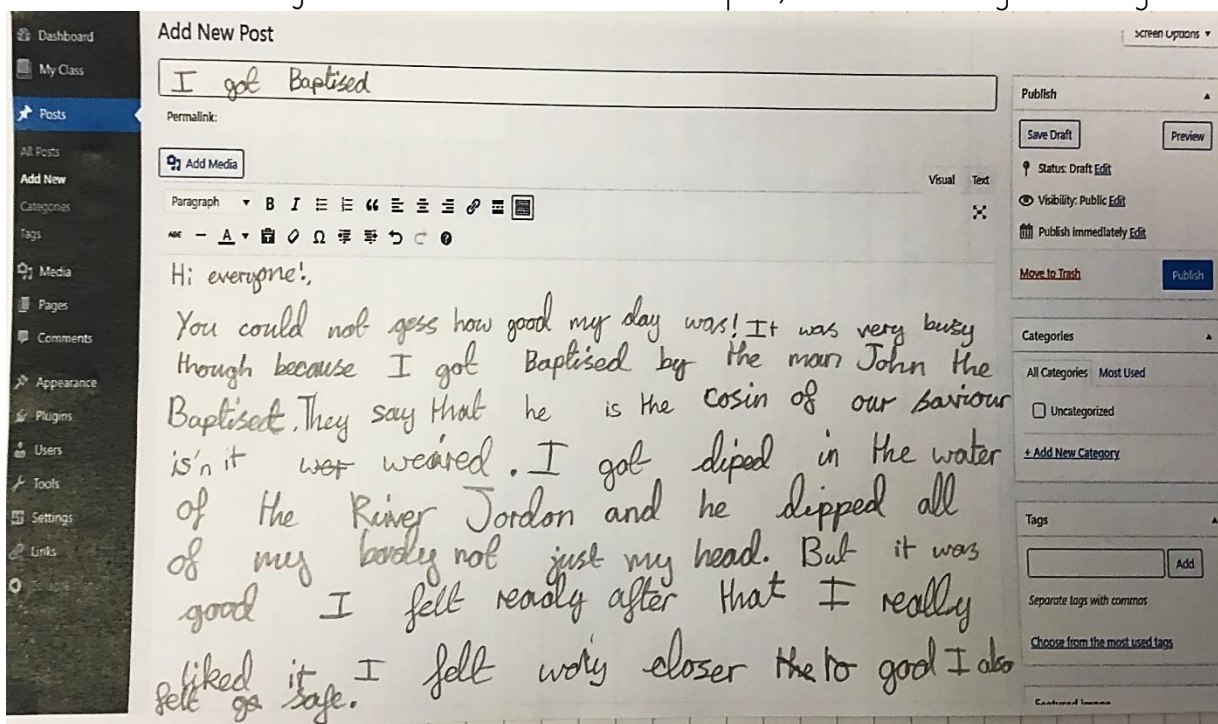 Dashboard
My Class
Posts
All Posts
Add New
Categories
Tags
Media
Pages
Comments
Appearance
Plugins
Users
Tools
Settings
Links
Add New Post
Screen Options
I got Baptised
Permalink:
Add Media
Visual Text
Paragraph B I
ABC A Ω
Hi everyone!,
You could not gess how good my day was! It was very busy
though because I got Baptised by the man John the
Baptised. They say that he is the cosin of our saviour
is'n it wer weaired. I got diped in the water
of the River Jordon and he dipped all
of my body not just my head. But it was
good I felt ready after that I really
liked it I felt woly closer the to good I also
felt go safe.
Publish
Save Draft Preview
Status: Draft Edit
Visibility: Public Edit
Publish immediately Edit
Move to Trash Publish
Categories
All Categories Most Used
Uncategorized
+ Add New Category
Tags
Add
Separate tags with commas
Choose from the most used tags
Featured Image